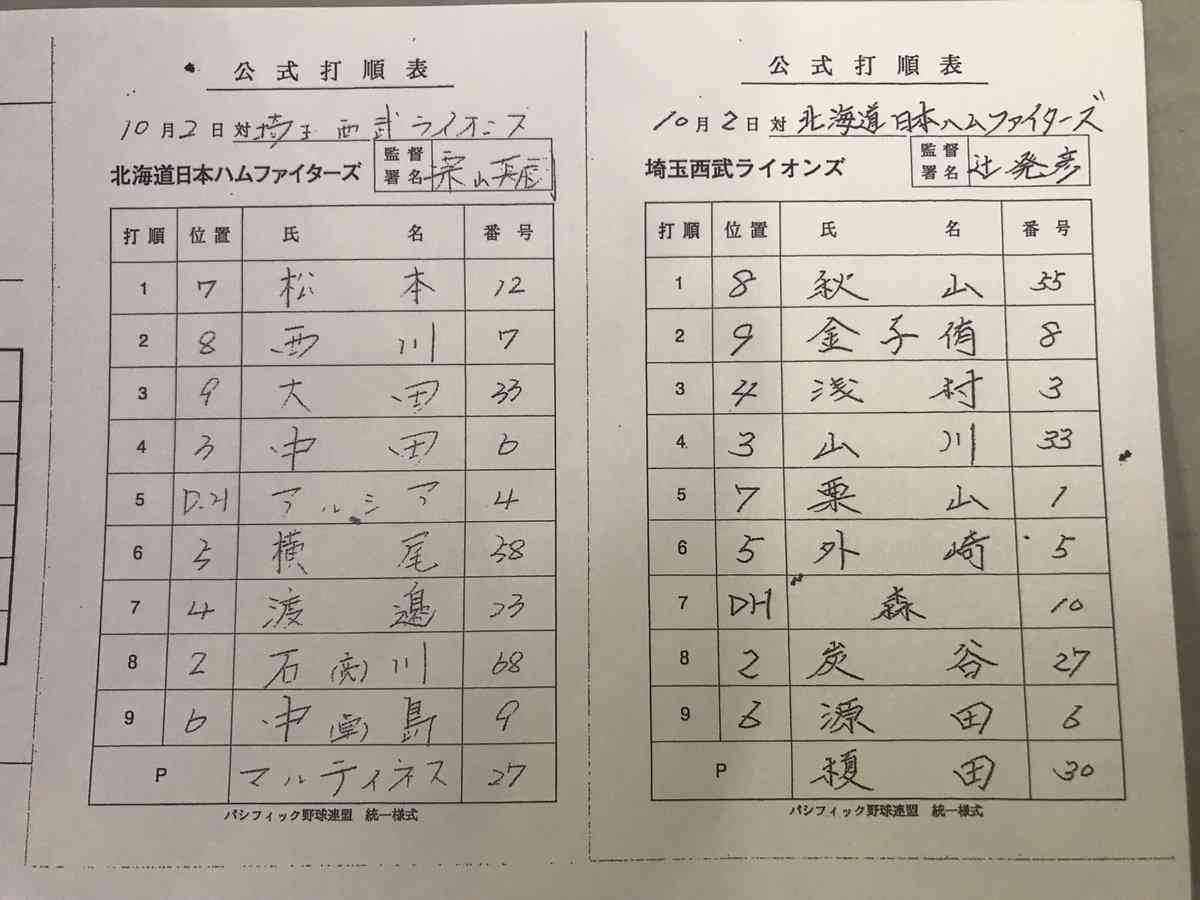 公式打順表
10月2日対埼玉西武ライオンズ
北海道日本ハムファイターズ 監督署名 栗山英樹
打順 位置 氏名 番号
1 7 松本 12
2 8 西川 7
3 9 大田 33
4 3 中田 6
5 D.H アルシア 4
6 5 横尾 38
7 4 渡邉 23
8 2 石(高)川 68
9 6 中(卓)島 9
P マルティネス 27
パシフィック野球連盟 統一様式
公式打順表
10月2日対北海道日本ハムファイターズ
埼玉西武ライオンズ 監督署名 辻発彦
打順 位置 氏名 番号
1 8 秋山 55
2 9 金子侑 8
3 4 浅村 3
4 3 山川 33
5 7 栗山 1
6 5 外崎 5
7 DH 森 10
8 2 炭谷 27
9 6 源田 6
P 榎田 30
パシフィック野球連盟 統一様式